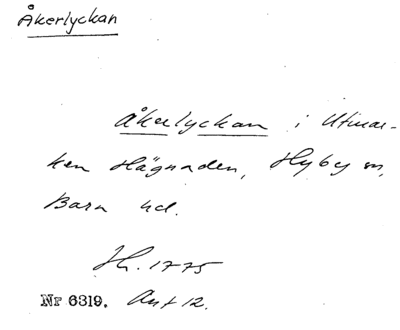 Åkerlyckan
Åkerlyckan i Utmar-
ken Hägnaden, Hyby sn,
Bara hd.
Hr. 1775
Nr 6319. Ant 12.